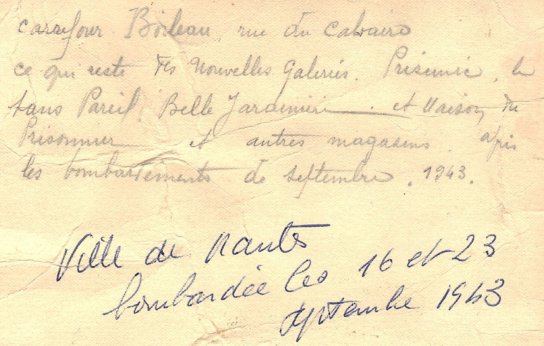 carrefour Boileau, rue du Calvaire
ce qui reste des Nouvelles Galeries. Prisunic, le
Sans Pareil, Belle Jardinière et Maison du
Prisonnier et autres magasins. après
les bombardements de septembre. 1943.
Ville de Nantes
bombardée les 16 et 23
septembre 1943